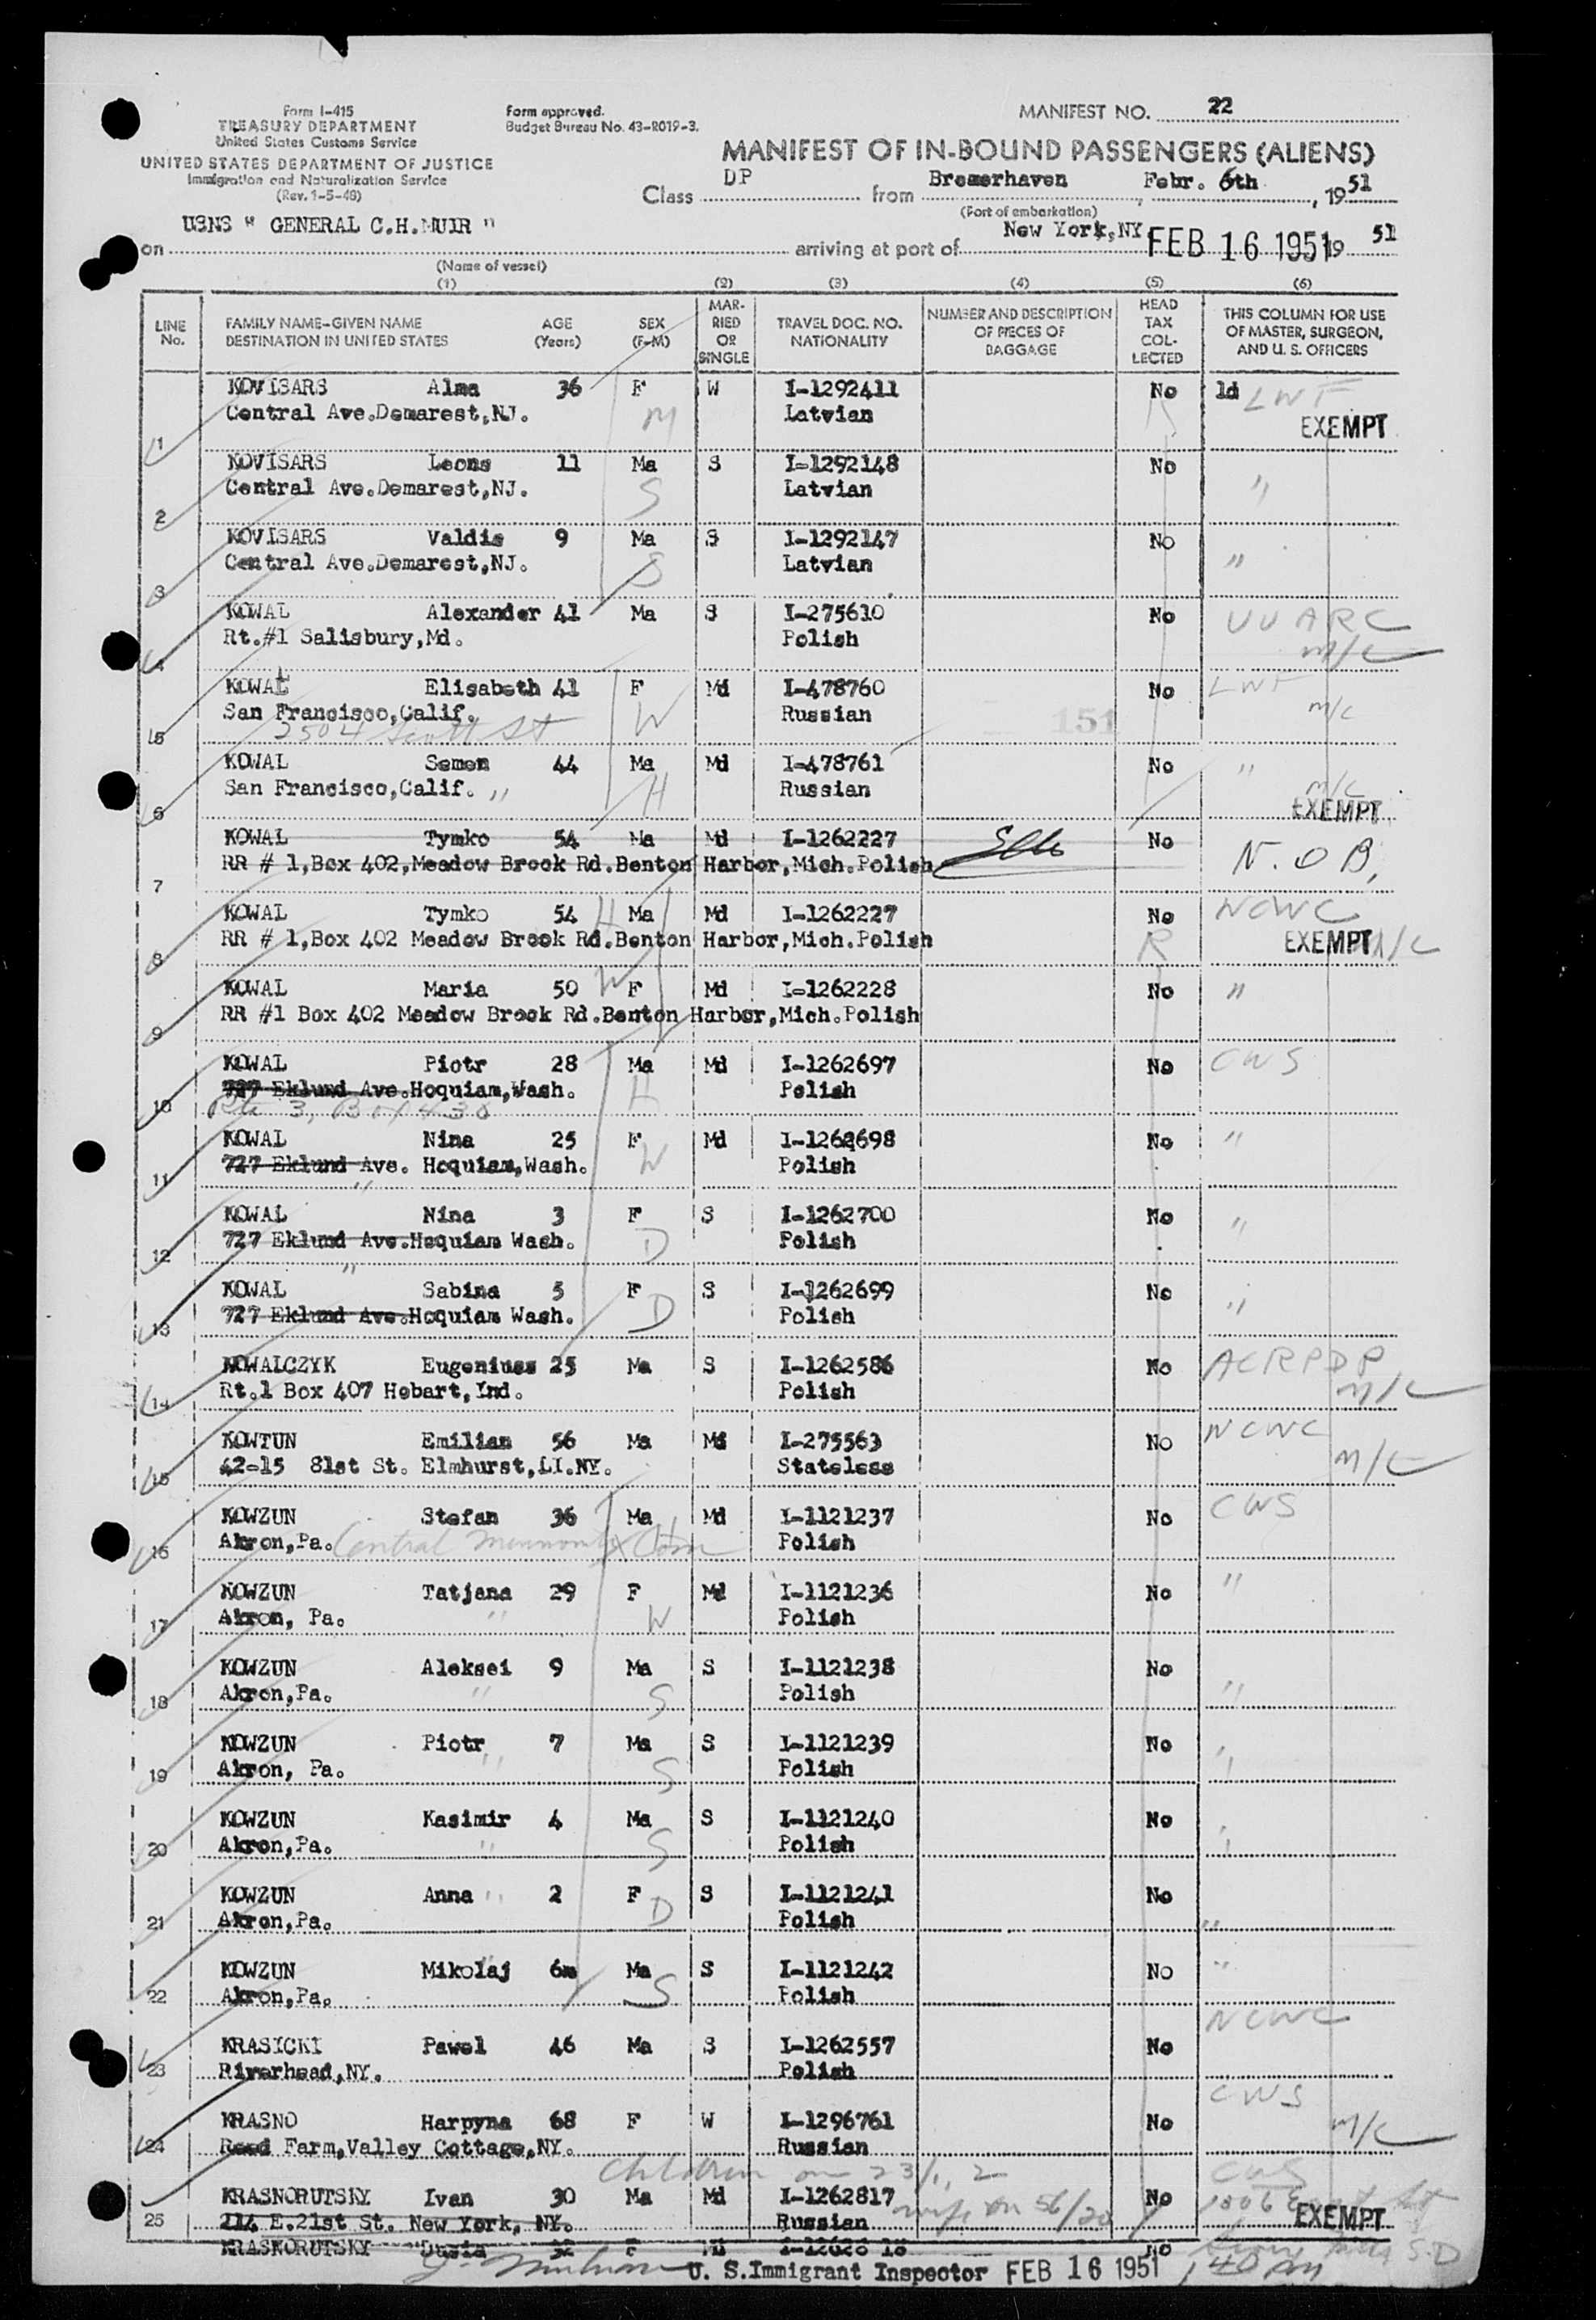 Form I-415
TREASURY DEPARTMENT
United States Customs Service
UNITED STATES DEPARTMENT OF JUSTICE
Immigration and Naturalization Service
(Rev. 1-5-48)
Form approved.
Budget Bureau No. 43-R019-3.
MANIFEST NO. 22
MANIFEST OF IN-BOUND PASSENGERS (ALIENS)
Class DP from Bremerhaven, Febr. 6th, 1951
(Port of embarkation)
on USNS " GENERAL C.H.MUIR " arriving at port of New York,NY. FEB 16 1951 19 51
(Name of vessel)
(1) (2) (3) (4) (5) (6)
LINE No. FAMILY NAME-GIVEN NAME DESTINATION IN UNITED STATES AGE (Years) SEX (F-M) MARRIED OR SINGLE TRAVEL DOC. NO. NATIONALITY NUMBER AND DESCRIPTION OF PIECES OF BAGGAGE HEAD TAX COLLECTED THIS COLUMN FOR USE OF MASTER, SURGEON, AND U. S. OFFICERS
KOVISARS Alma 36 F W I-1292411 No ld LWF
1 Central Ave.Demarest,NJ. M Latvian EXEMPT
KOVISARS Leons 11 Ma S I-1292148 No
2 Central Ave.Demarest,NJ. S Latvian "
KOVISARS Valdis 9 Ma S I-1292147 No
3 Central Ave.Demarest,NJ. S Latvian "
KOWAL Alexander 41 Ma S I-275610 No UUARC
4 Rt.#1 Salisbury,Md. Polish m/c
KOWAL Elisabeth 41 F Md I-478760 No LWF
5 San Francisco,Calif. W Russian 151 m/c
2504 Scott St
KOWAL Semen 44 Ma Md I-478761 No " m/c
6 San Francisco,Calif. " H Russian EXEMPT
KOWAL Tymko 54 Ma Md I-1262227 No
7 RR # 1,Box 402,Meadow Brook Rd.Benton Harbor,Mich.Polish N.O B.
KOWAL Tymko 54 H Ma Md I-1262227 No NCWC
8 RR # 1,Box 402 Meadow Brook Rd.Benton Harbor,Mich.Polish R EXEMPT M/C
KOWAL Maria 50 W F Md I-1262228 No "
9 RR #1 Box 402 Meadow Brook Rd.Benton Harbor,Mich.Polish
KOWAL Piotr 28 Ma Md I-1262697 No CWS
10 727 Eklund Ave.Hoquiam,Wash. H Polish
Rte 3, Box 438
KOWAL Nina 25 F Md I-1262698 No "
11 727 Eklund Ave. Hoquiam,Wash. W Polish
"
KOWAL Nina 3 F S I-1262700 No
12 727 Eklund Ave.Hoquiam Wash. D Polish "
"
KOWAL Sabina 5 F S I-1262699 No
13 727 Eklund Ave.Hoquiam Wash. D Polish "
KOWALCZYK Eugeniusz 25 Ma S I-1262586 No ACRPDP
14 Rt.1 Box 407 Hobart,Ind. Polish m/c
KOWTUN Emilian 56 Ma Md I-275563 No NCWC
15 42-15 81st St. Elmhurst,LI.NY. Stateless m/c
KOWZUN Stefan 36 Ma Md I-1121237 No CWS
16 Akron,Pa. Central Mennonite Com H Polish
KOWZUN Tatjana 29 F Md I-1121236 No "
17 Akron, Pa. " W Polish
KOWZUN Aleksei 9 Ma S I-1121238 No
18 Akron,Pa. " S Polish "
KOWZUN Piotr 7 Ma S I-1121239 No
19 Akron, Pa. " S Polish "
KOWZUN Kasimir 4 Ma S I-1121240 No
20 Akron,Pa. " S Polish "
KOWZUN Anna " 2 F S I-1121241 No
21 Akron,Pa. D Polish "
KOWZUN Mikolaj 6m Ma S I-1121242 No "
22 Akron,Pa. S Polish
KRASICKI Pawel 46 Ma S I-1262557 No NCWC
23 Riverhead,NY. Polish
KRASNO Harpyna 68 F W I-1296761 No CWS
24 Reed Farm,Valley Cottage,NY. Russian m/c
Children on 23/1, 2
KRASNORUTSKY Ivan 30 Ma Md I-1262817 No CWS
25 214 E.21st St. New York, NY. Russian wife on 56/20 EXEMPT
KRASNORUTSKY Dusia 32 F Md I-12628 18 No
U. S.Immigrant Inspector FEB 16 1951